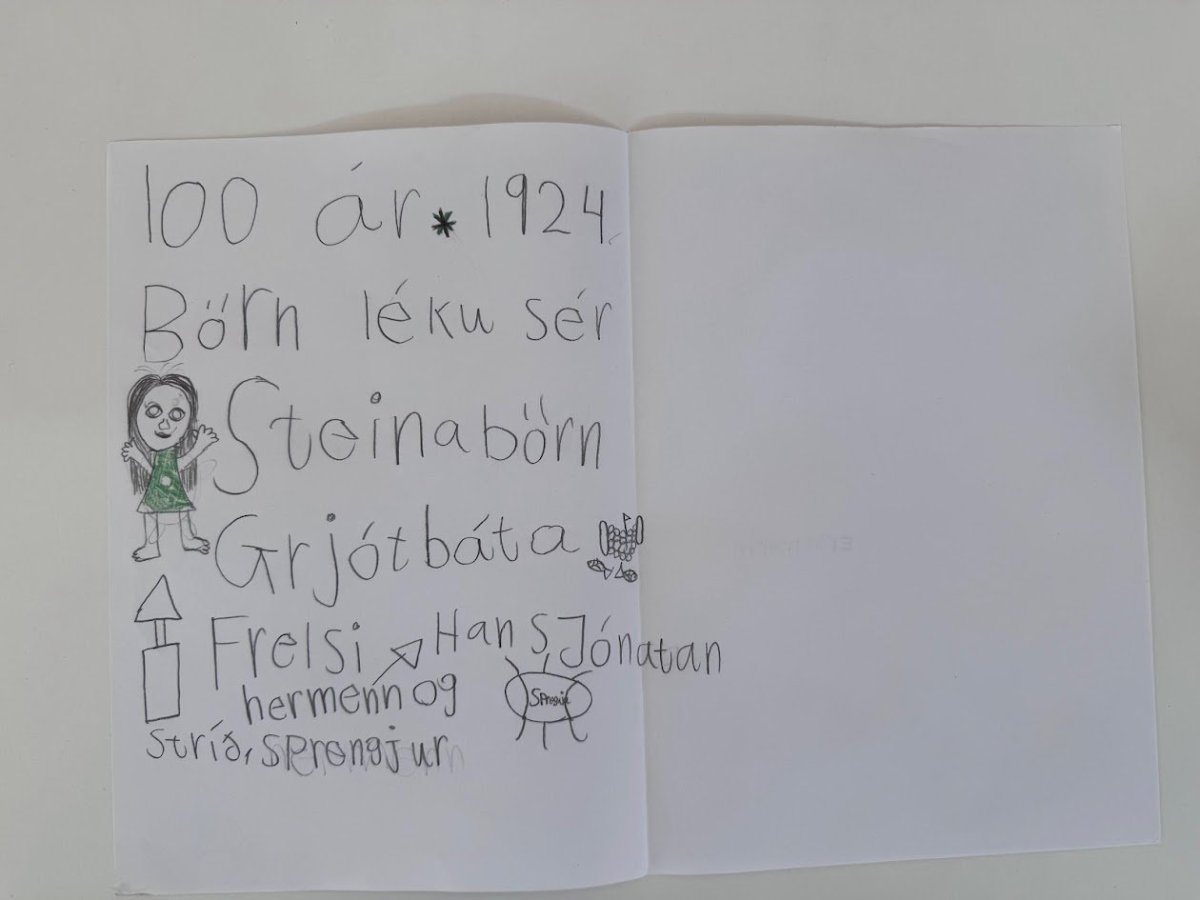 100 ár * 1924
Börn léku sér
Steinabörn
Grjótbáta
Frelsi Hans Jónatan
hermenn og
stríð, sprengjur